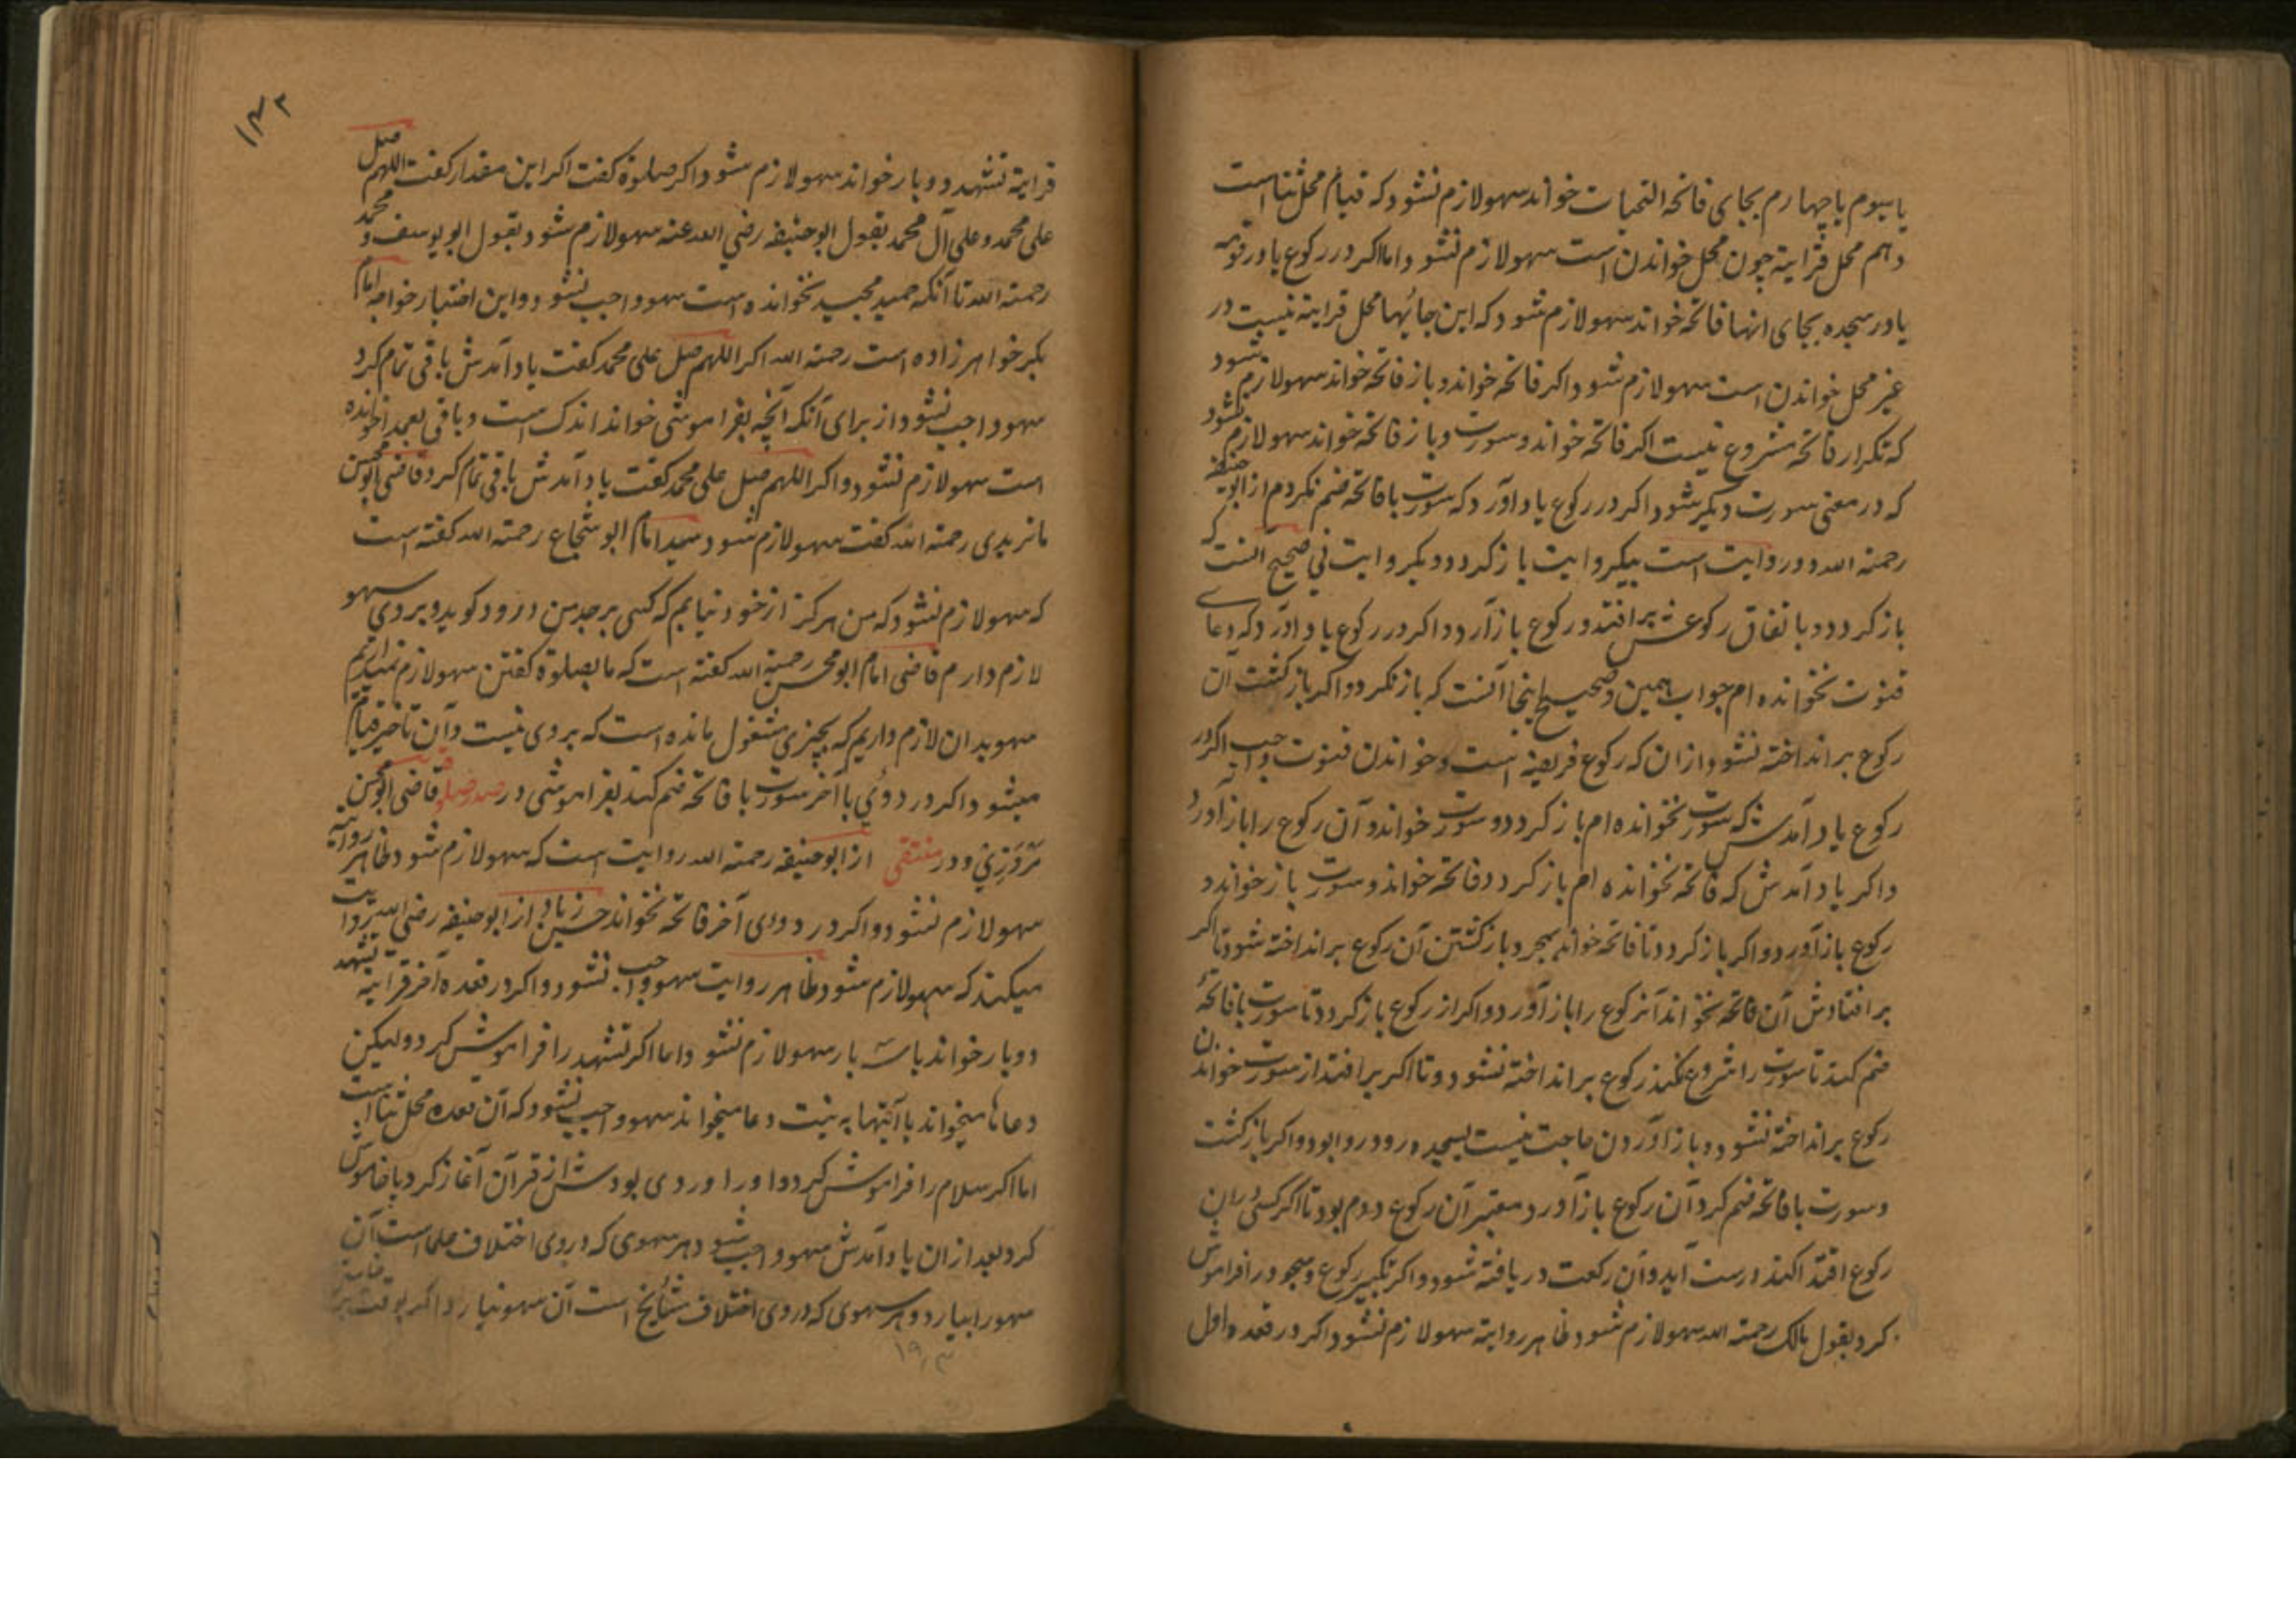 یا سیوم یا چهارم بجای فاتحه التحیات خواند سهو لازم نشود که قیام محل ثنا است
و هم محل قرایة چون محل خواندن است سهو لازم نشود و اما اکر در رکوع یا در قومه
یا در سجده بجای انها فاتحه خواند سهو لازم شود که این جائیها محل قرایة نیست در
غیر محل خواندن است سهو لازم شود و اکر فاتحه خواند و باز فاتحه خواند سهو لازم شود
که تکرار فاتحه مشروع نیست اکر فاتحه خواند و سورت و باز فاتحه خواند سهو لازم نشود
که در معنی سورت دیکر شود و اکر در رکوع یاد آورد که سورت با فاتحه ضم نکردم از ابو حنیفه
رحمة الله دو روایت است بیکروایت باز کردد و دیکر روایت نی صحیح انست که
باز کردد و باتفاق رکوعش بر افتد و رکوع باز آرد و اکر در رکوع یاد آورد که دعای
قنوت نخوانده ام جواب همین و صحیح اینجا آنست که باز نکردد و اکر باز کشت آن
رکوع بر انداخته نشود از ان که رکوع فریضه است و خواندن قنوت واجب و اکر در
رکوع یاد آمدش که سورت نخوانده ام باز کردد و سورت خواند و آن رکوع را باز آورد
و اکر یاد آمدش که فاتحه نخوانده ام باز کردد و فاتحه خواند و سورت باز خواند و
رکوع باز آورد و اکر باز کردد تا فاتحه خواند بمجرد باز کشتن آن رکوع بر انداخته شود تا اکر
بر افتادش آن فاتحه نخواند آنرکوع را باز آورد و اکر از رکوع باز کردد تا سورت با فاتحهٔ
ضم کند تا سورت را شروع نکند رکوع بر انداخته نشود و تا اکر بر افتد از سورت خواندن
رکوع بر انداخته نشود و باز آوردن حاجت نیست بسجده رود روا بود و اکر باز کشت
و سورت با فاتحه ضم کرد آن رکوع باز آورد معتبر آن رکوع دوم بود تا اکر کسی در ان
رکوع اقتدا کند درست آید و آن رکعت دریافته شود و اکر تکبیر رکوع و سجود را فراموش
کرد بقول مالک رحمة الله سهو لازم شود ظاهر روایة سهو لازم نشود و اکر در قعده اول
۱۴۳
قرایة تشهد دو بار خواند سهو لازم شود و اکر صلوة کفت اکر این مقدار کفت اللهم صل
علی محمد و علی آل محمد بقول ابو حنیفه رضی الله عنه سهو لازم شود و بقول ابو یوسف و محمد
رحمة الله تا آنکه حمید مجید نخوانده است سهو واجب نشود و این اختیار خواجه امام
بکر خواهر زاده است رحمة الله اکر اللهم صل علی محمد کفت یاد آمدش باقی تمام کرد
سهو واجب نشود از برای آنکه آنچه بفراموشی خواند اندک است و باقی بعمد خوانده
است سهو لازم نشود و اکر اللهم صل علی محمد کفت یاد آمدش باقی تمام کرد قاضی ابو الحسن
ماتریدی رحمة الله کفت سهو لازم شود سید امام ابو شجاع رحمة الله کفته است
که سهو لازم نشود که من هرکز از خود نیابم که کسی بر جد من درود کوید و بر وی سهو
لازم دارم قاضی امام ابو محسن رحمة الله کفته است که ما بصلوة کفتن سهو لازم نمیداریم
سهو بدان لازم داریم که بچیزی مشغول مانده است که بر وی نیست و آن تاخیر قیام
میشود و اکر در دوئی با آخر سورت با فاتحه ضم کند بفراموشی در صدر صلوة قاضی ابو الحسن
مَروَزِیّ و در منتقی از ابو حنیفه رحمة الله روایت است که سهو لازم شود ظاهر روایة
سهو لازم نشود و اکر در دوی آخر فاتحه نخواند حسن زیاد از ابو حنیفه رضی الله روایت
میکند که سهو لازم شود ظاهر روایت سهو واجب نشود و اکر در قعده آخر قرایة تشهد
دو بار خواند یا سه بار سهو لازم نشود و اما اکر تشهد را فراموش کرد و لیکن
دعاها میخواند یا آیتها به نیت دعا میخواند سهو واجب نشود که آن قعده محل ثنا است
اما اکر سلام را فراموش کرد و او را وردی بودش از قرآن آغاز کرد یا خاموش
کرد بعد از ان یاد آمدش سهو واجب شود و هر سهوی که در وی اختلاف علما است آن
سهو را بیارد و هر سهوی که در وی اختلاف مشایخ است آن سهو نیارد و اکر بوقت